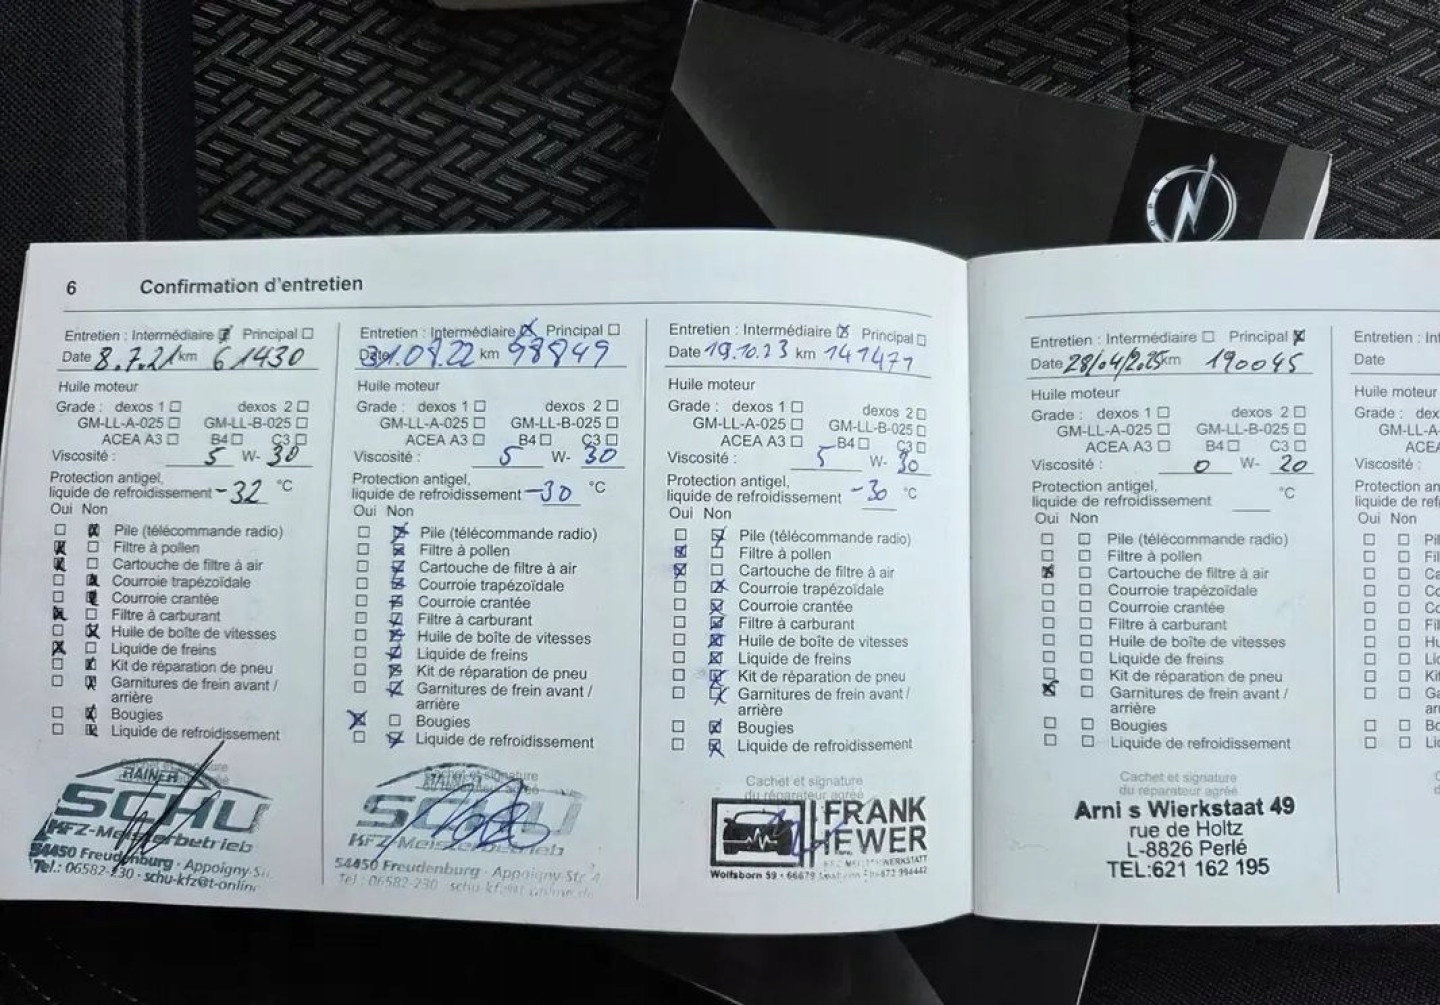 6 Confirmation d'entretien
Entretien : Intermédiaire Principal
Date 8.7.21 km 61430
Huile moteur
Grade : dexos 1 dexos 2
GM-LL-A-025 GM-LL-B-025
ACEA A3 B4 C3
Viscosité : 5 W- 30
Protection antigel,
liquide de refroidissement -32 °C
Oui Non
Pile (télécommande radio)
Filtre à pollen
Cartouche de filtre à air
Courroie trapézoïdale
Courroie crantée
Filtre à carburant
Huile de boîte de vitesses
Liquide de freins
Kit de réparation de pneu
Garnitures de frein avant /
arrière
Bougies
Liquide de refroidissement
RAINER
SCHU
KFZ-Meisterbetrieb
54450 Freudenburg · Appoigny-S
Tel.: 06582-230 · schu-kfz@t-onlin
Entretien : Intermédiaire Principal
Date 31.08.22 km 98849
Huile moteur
Grade : dexos 1 dexos 2
GM-LL-A-025 GM-LL-B-025
ACEA A3 B4 C3
Viscosité : 5 W- 30
Protection antigel,
liquide de refroidissement -30 °C
Oui Non
Pile (télécommande radio)
Filtre à pollen
Cartouche de filtre à air
Courroie trapézoïdale
Courroie crantée
Filtre à carburant
Huile de boîte de vitesses
Liquide de freins
Kit de réparation de pneu
Garnitures de frein avant /
arrière
Bougies
Liquide de refroidissement
Cachet et signature
du réparateur agréé
RAINER
SCHU
KFZ-Meisterbetrieb
54450 Freudenburg · Appoigny-Str. 4
Tel.: 06582-230 schu-kfz@t-online.de
Entretien : Intermédiaire Principal
Date 19.10.23 km 141477
Huile moteur
Grade : dexos 1 dexos 2
GM-LL-A-025 GM-LL-B-025
ACEA A3 B4 C3
Viscosité : 5 W- 30
Protection antigel,
liquide de refroidissement -30 °C
Oui Non
Pile (télécommande radio)
Filtre à pollen
Cartouche de filtre à air
Courroie trapézoïdale
Courroie crantée
Filtre à carburant
Huile de boîte de vitesses
Liquide de freins
Kit de réparation de pneu
Garnitures de frein avant /
arrière
Bougies
Liquide de refroidissement
Cachet et signature
du réparateur agréé
FRANK
HEWER
KFZ-MEISTERWERKSTATT
Wolfsborn 59 · 66679
Entretien : Intermédiaire Principal
Date 28/04/2025 km 190045
Huile moteur
Grade : dexos 1 dexos 2
GM-LL-A-025 GM-LL-B-025
ACEA A3 B4 C3
Viscosité : 0 W- 20
Protection antigel,
liquide de refroidissement °C
Oui Non
Pile (télécommande radio)
Filtre à pollen
Cartouche de filtre à air
Courroie trapézoïdale
Courroie crantée
Filtre à carburant
Huile de boîte de vitesses
Liquide de freins
Kit de réparation de pneu
Garnitures de frein avant /
arrière
Bougies
Liquide de refroidissement
Cachet et signature
du réparateur agréé
Arni s Wierkstaat 49
rue de Holtz
L-8826 Perlé
TEL:621 162 195
Entretien : Int
Date
Huile moteur
Grade : dex
GM-LL-A
ACEA
Viscosité :
Protection an
liquide de ref
Oui Non
Pil
Filt
Ca
Co
Co
Filt
Hu
Liq
Kit
Ga
arr
Bo
Liq